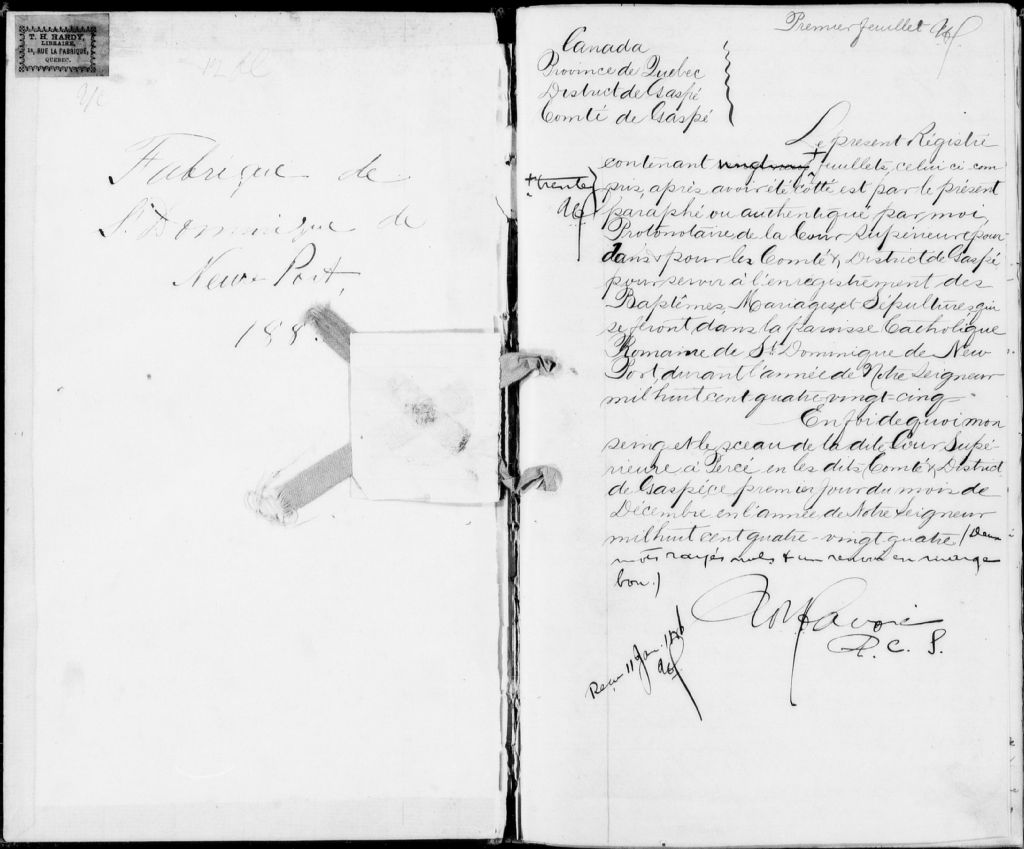 T. H. HARDY,
LIBRAIRE,
RUE LA FABRIQUE,
QUEBEC.
Fabrique de
St Dominique de
New-Port,
188
Premier feuillet
Canada
Province de Quebec
District de Gaspé
Comté de Gaspé
Le présent Régistre
contenant + feuillets, celui ci com
+ trente
pris, après avoir été côtté est par le présent
paraphé ou authentiqué par moi,
Protonotaire de la Cour Supérieure pour
dans & pour les Comté & District de Gaspé
pour servir à l'enregistrement des
Baptêmes, Mariages, et Sépultures qui
se feront dans la paroisse Catholique
Romaine de St Dominique de New
Port durant l'année de Notre Seigneur
mil huit cent quatre-vingt-cinq
En foi de quoi mon
seing et le sceau de la dite Cour Supé-
rieure à Percé en les dits Comté & District
de Gaspé ce premier jour du mois de
Décembre en l'année de Notre Seigneur
mil huit cent quatre-vingt-quatre (Deux
mots rayés nuls & un renvoi en marge
bon.)
P. C. S.
Recu 11 Jan. 1886